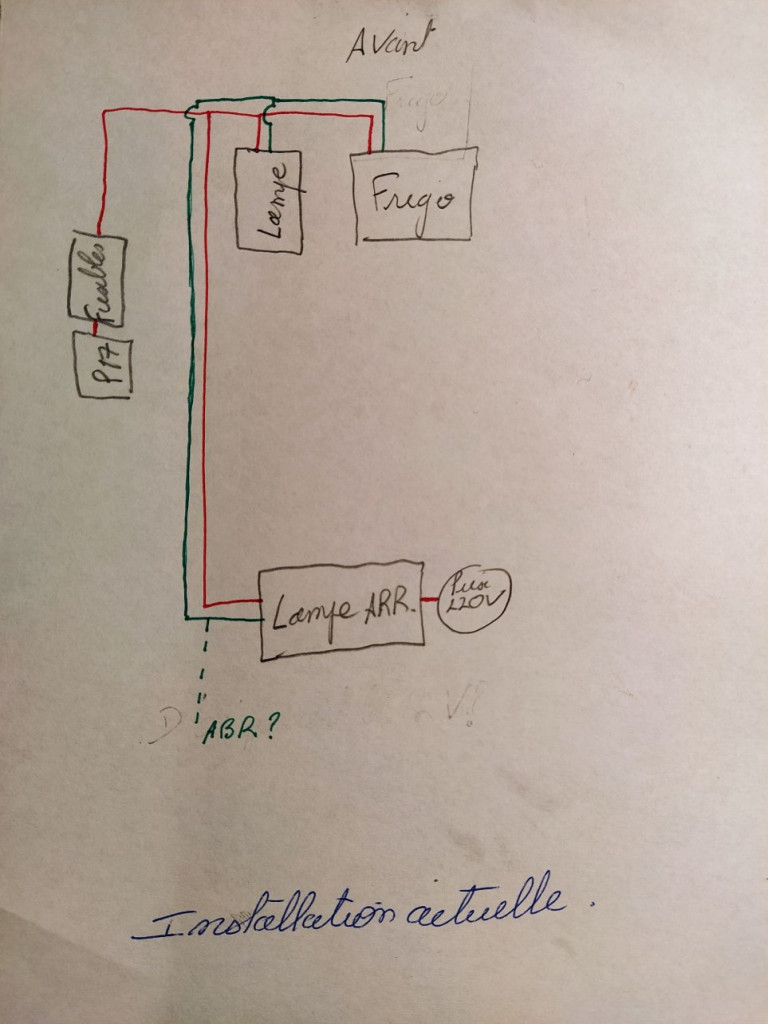 Avant
Frigo
Lampe
Frigo
Fusibles
P17
Lampe ARR.
Prise
220V
ABR ?
Installation actuelle.